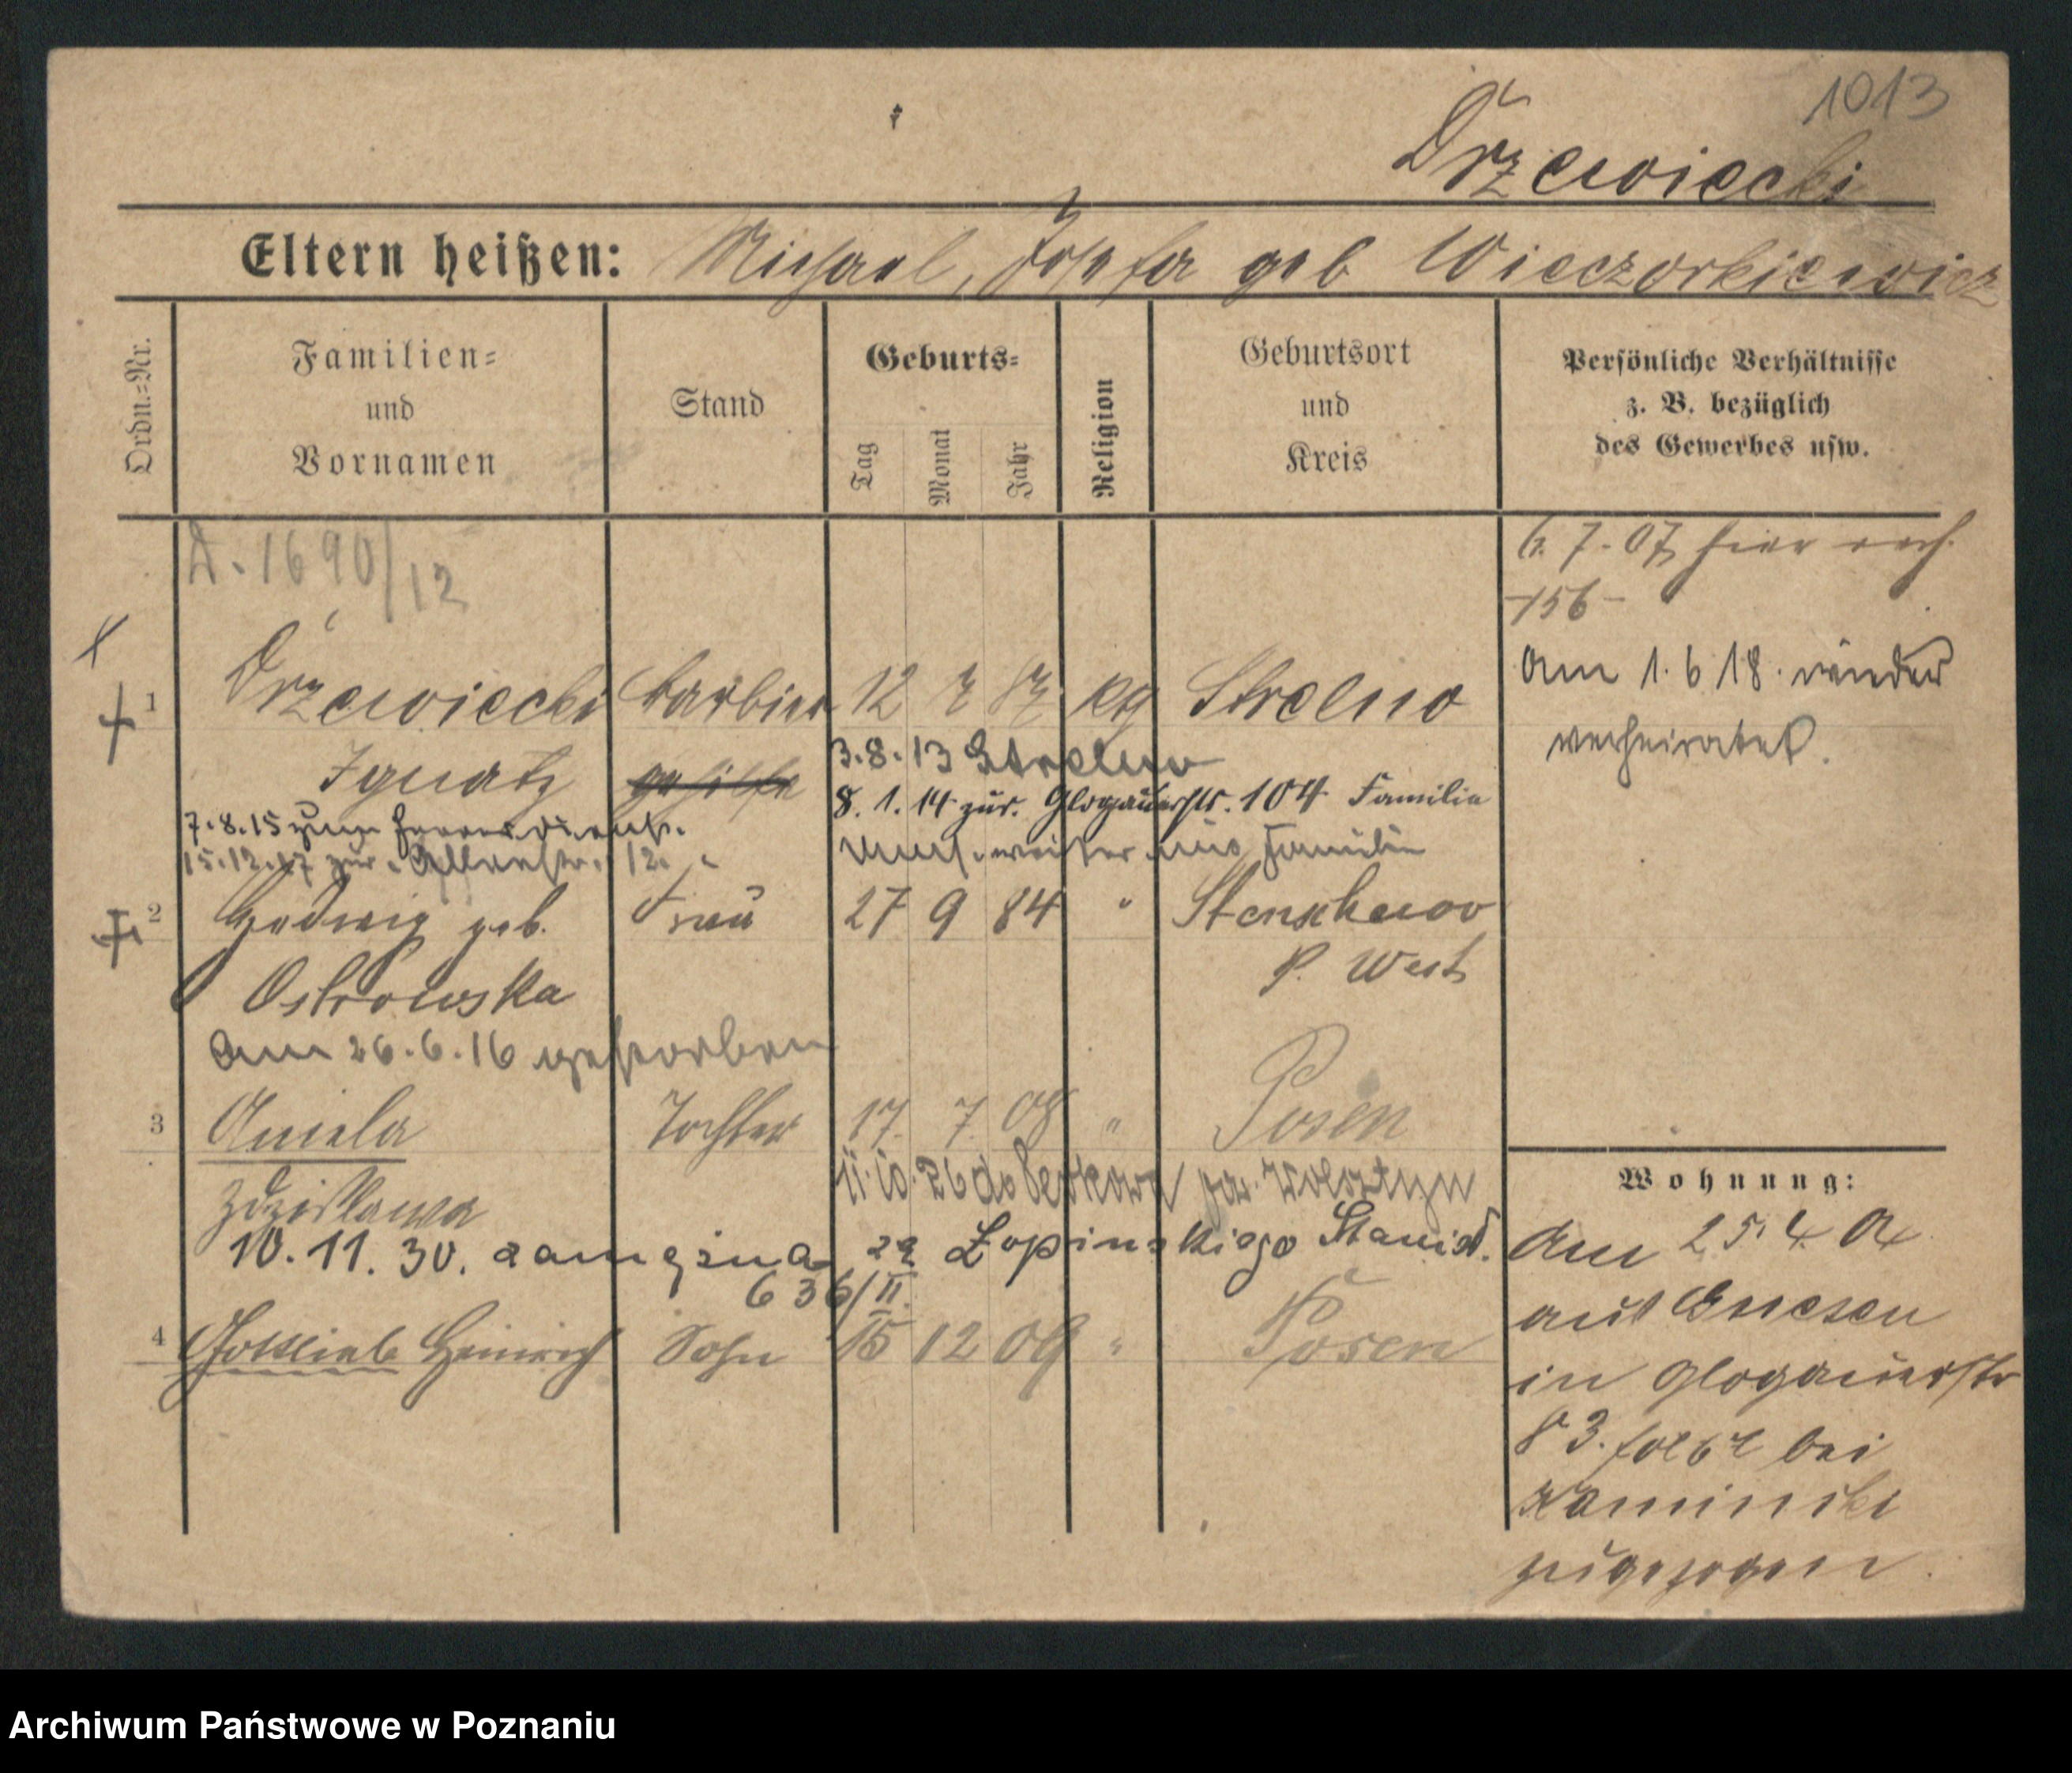 1013
Drzewiecki
Eltern heißen: Michael, Josefa geb Wieczorkiewicz
Ordn.=Nr.
Familien= und Vornamen
Stand
Geburts=
Tag
Monat
Jahr
Religion
Geburtsort und Kreis
Persönliche Verhältnisse
z. B. bezüglich
des Gewerbes usw.
A. 1690/12
6. 7. 07 hier
-156-
Am 1. 6 18. wieder
verheiratet.
1 Drzewiecki Barbier 12 7 87 kg Strelno
Ignatz gehilfe
3.8.13 Strelno
8. 1. 14 zur. Glogauerstr. 104 Familie
7.8.15 zum Heeresdienst.
15.12.17 zur. 12.
Familie
2 Hedwig geb. Frau 27 9 84 " Stenschewo
Ostrowska P. West
Am 26.6.16 gestorben
3 Aniela Tochter 17. 7. 08 " Posen
Zdzisława
11.10.26 do pow. Wolsztyn
10. 11. 30. zamężna za Łopińskiego Stanisł.
636/II.
4 Gottlieb Heinrich Sohn 15 12 09 " Posen
Wohnung:
Am 25 4 04
aus Gnesen
in Glogauerstr
83. bei
Kaminski
zugezogen.
Archiwum Państwowe w Poznaniu